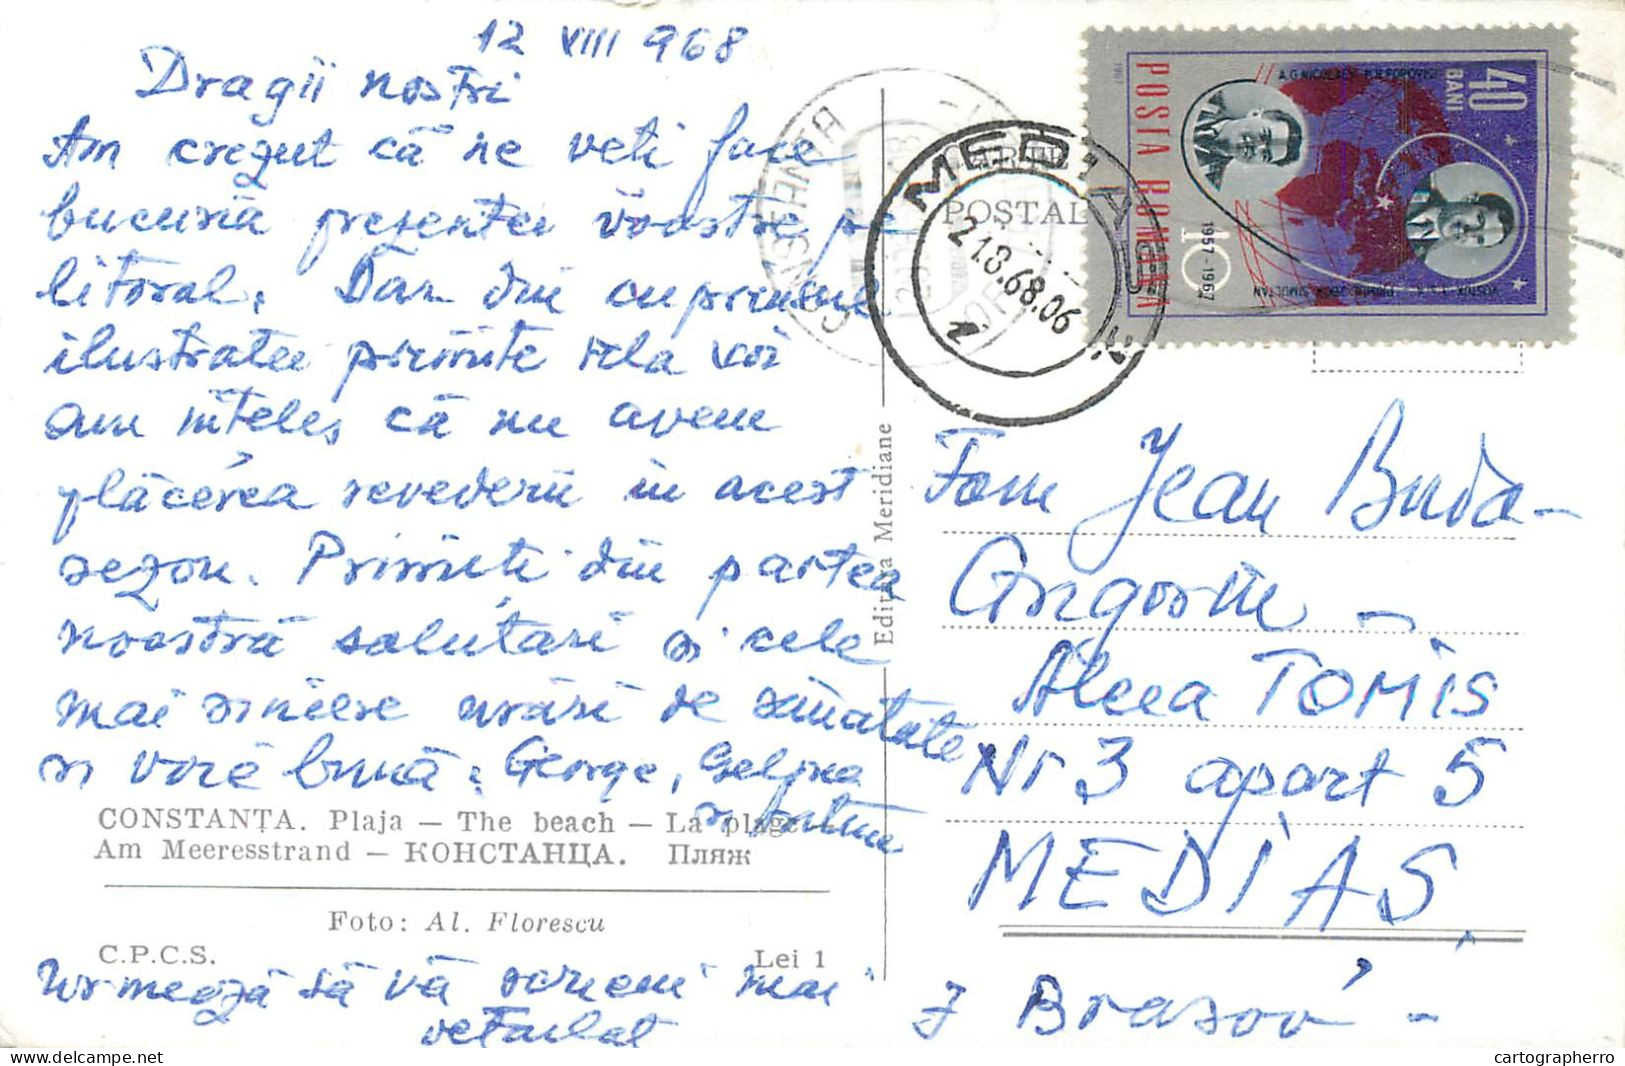 12 VIII 968
Dragii nostri
Am crezut că ne veti face
bucuria prezentei voastre pe
litoral. Dar din cuprinsul
ilustratei primite dela voi
am inteles că nu avem
plăcerea revederii in acest
sezon. Primiți din partea
noastră salutari si cele
mai sincere urări de sănatate
si voie bună. George,
si
CONSTANȚA. Plaja — The beach — La plage —
Am Meeresstrand — КОНСТАНЦА. Пляж
Foto: Al. Florescu
C.P.C.S. Lei 1
Urmează să vă scriem mai
detailat
Editura Meridiane
CONSTANTA
POȘTAL
MEDIAȘ
21.8.68.06
POSTA ROMANA
40 BANI
A.G. NICOLAEV P.R. POPOVICI
1957-1967
10
1967
Fam Jean Buda-
Grigorin -
Aleea TOMIS
Nr 3 apart 5
MEDIAȘ
J Brasov -
cartographerro